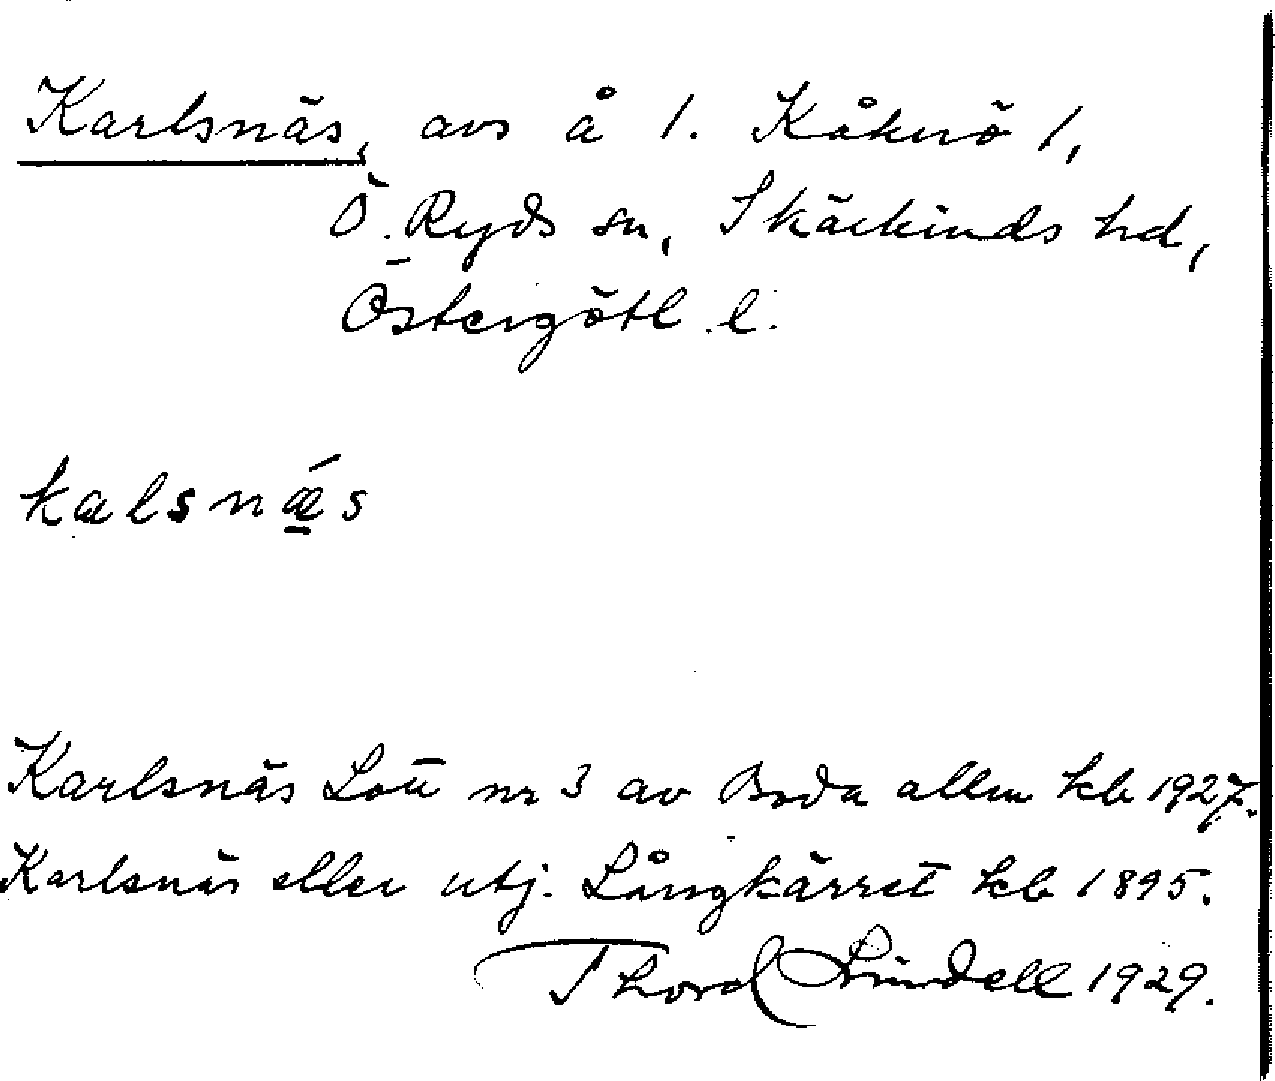 Karlsnäs, avs å 1. Kåkerö 1,
Ö. Ryds sn, Skärkinds hd,
Östergötl. l.
kalsnǽ̱s
Karlsnäs Lott nr 3 av Boda allm kb 1927.
Karlsnäs eller utj. Långkärret kb 1895.
Thord Lindell 1929.